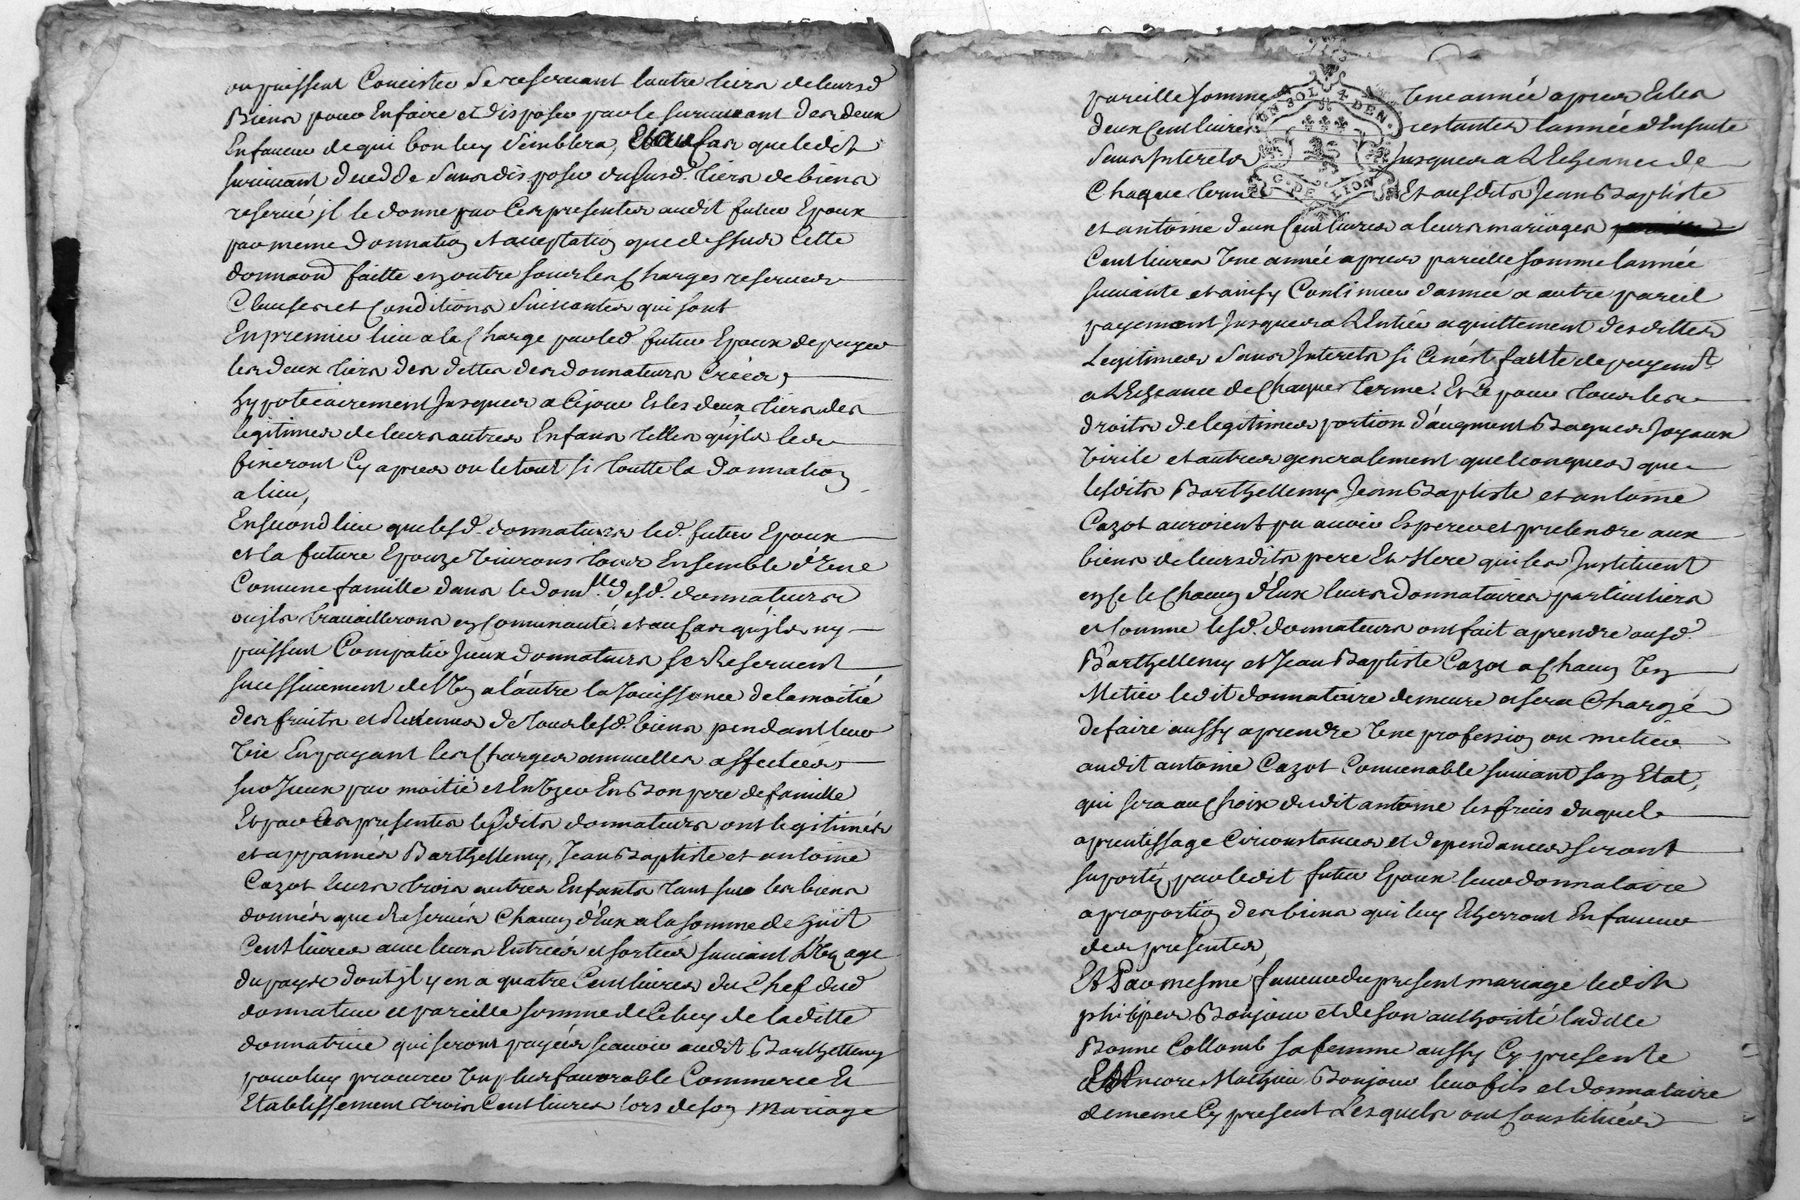 ou puissent Concister Se reservant lautre tiers de leursd
Biens pour En faire et disposer par le survivant des deux
En faveur de qui bon luy Semblera, Et au Cas que ledit
survivant decedde Sans disposer dususd. tiers de biens
reservé jl le donne par Ces presentes audit futur Epoux
par meme donnation et acceptation que dessus Cette
donnaon faitte en outre sour les Charges reserves
Clauses et Conditions Suivantes qui sont
En premier lieu a la Charge par led futur Epoux de payer
les deux tiers des dettes des donnateurs Créés
hypotecairement Jusques a Ce jour Et les deux tiers des
legitimes de leurs autres Enfans telles qu'jls les
fixeront Cy apres ou le tout si toutte la donnation
a lieu,
En second lieu que lesd. donnateurs led. futur Epoux
et la future Epouze vivrons tous Ensemble d'Une
Comune famille dans le domlle. desd. donnateurs
ou jls travaillerons en Communauté et au Cas qu'jls ny
puissent Compatir Jceux donnateurs se Reservent
sucessivement de l'Un a l'autre la Jouissance de la moitié
des fruits et Revenus de tous lesd. biens pendant leur
vie En payant les Charges annuelles affectées
sur Jceux par moitié et En Uzer En Bon pere de famille
Et par Ces presentes lesdits donnateurs ont legitimés
et appannes Barthellemy, Jean Baptiste et antoine
Cazot leurs trois autres Enfants tant sur les biens
donnés que Reservés Chacun d'Eux a la somme de huit
Cent livres avec leurs Entrées et sorties suivant l'Uzage
du pays dont jl y en a quatre Cent livres du Chef dud
donnateur et pareille somme de Celuy de laditte
donnatrice qui seront payés scavoir audit Barthellemy
pour luy procurer Un plus favorable Commerce Et
Etablissement trois Cent livres lors de son Mariage
pareille somme Une année apres Et les
deux Cent livres restantes l'année d'Ensuite
Sans Interets Jusques a l'Echeance de
Chaque terme Et ausdits Jean Baptiste
et antoine deux Cent livres a leurs mariages
Cent livres Une année apres pareille somme l'année
suivante et ainsy Continuer d'année a autre pareil
payement Jusques a l'Entier aquittement desdittes
Legitimes Sans Interets si Ce n'est faitte de payemt
a l'Echeance de Chaque terme. Et Ce pour tous les
droits de legitimes portion d'augment Bagues Joyaux
Virile et autres generalement quelconques que
lesdits Barthellemy Jean Baptiste et antoine
Cazot auroient pu avoir Esperer et pretendre aux
biens de leursdits pere Et Mere qui les Instituent
en Ce le Chacun d'Eux leurs donnataires particuliers
et Comme lesd. donnateurs ont fait aprendre ausd.
Barthellemy et Jean Baptiste Cazot a Chacun Un
Metier ledit donnataire demeure et sera Chargé
de faire aussy aprendre Une profession ou metier
audit antoine Cazot Convenable suivant son Etat,
qui sera au Choix dudit antoine les frais duquel
aprentissage Circonstances et dependances seront
suportés par ledit futur Epoux leur donnataire
a proportion des biens qui luy Echerront En faveur
des presentes,
Et Par mesme faveur du present mariage ledit
philipes Bonjour et de son authorité ladite
Bonne Collomb sa femme aussy Cy presente
Et Encore Mathieu Bonjour leur fils et donnataire
de meme Cy present Lesquels ont Constitués
UN SOL 4 DEN.
G. DE LION